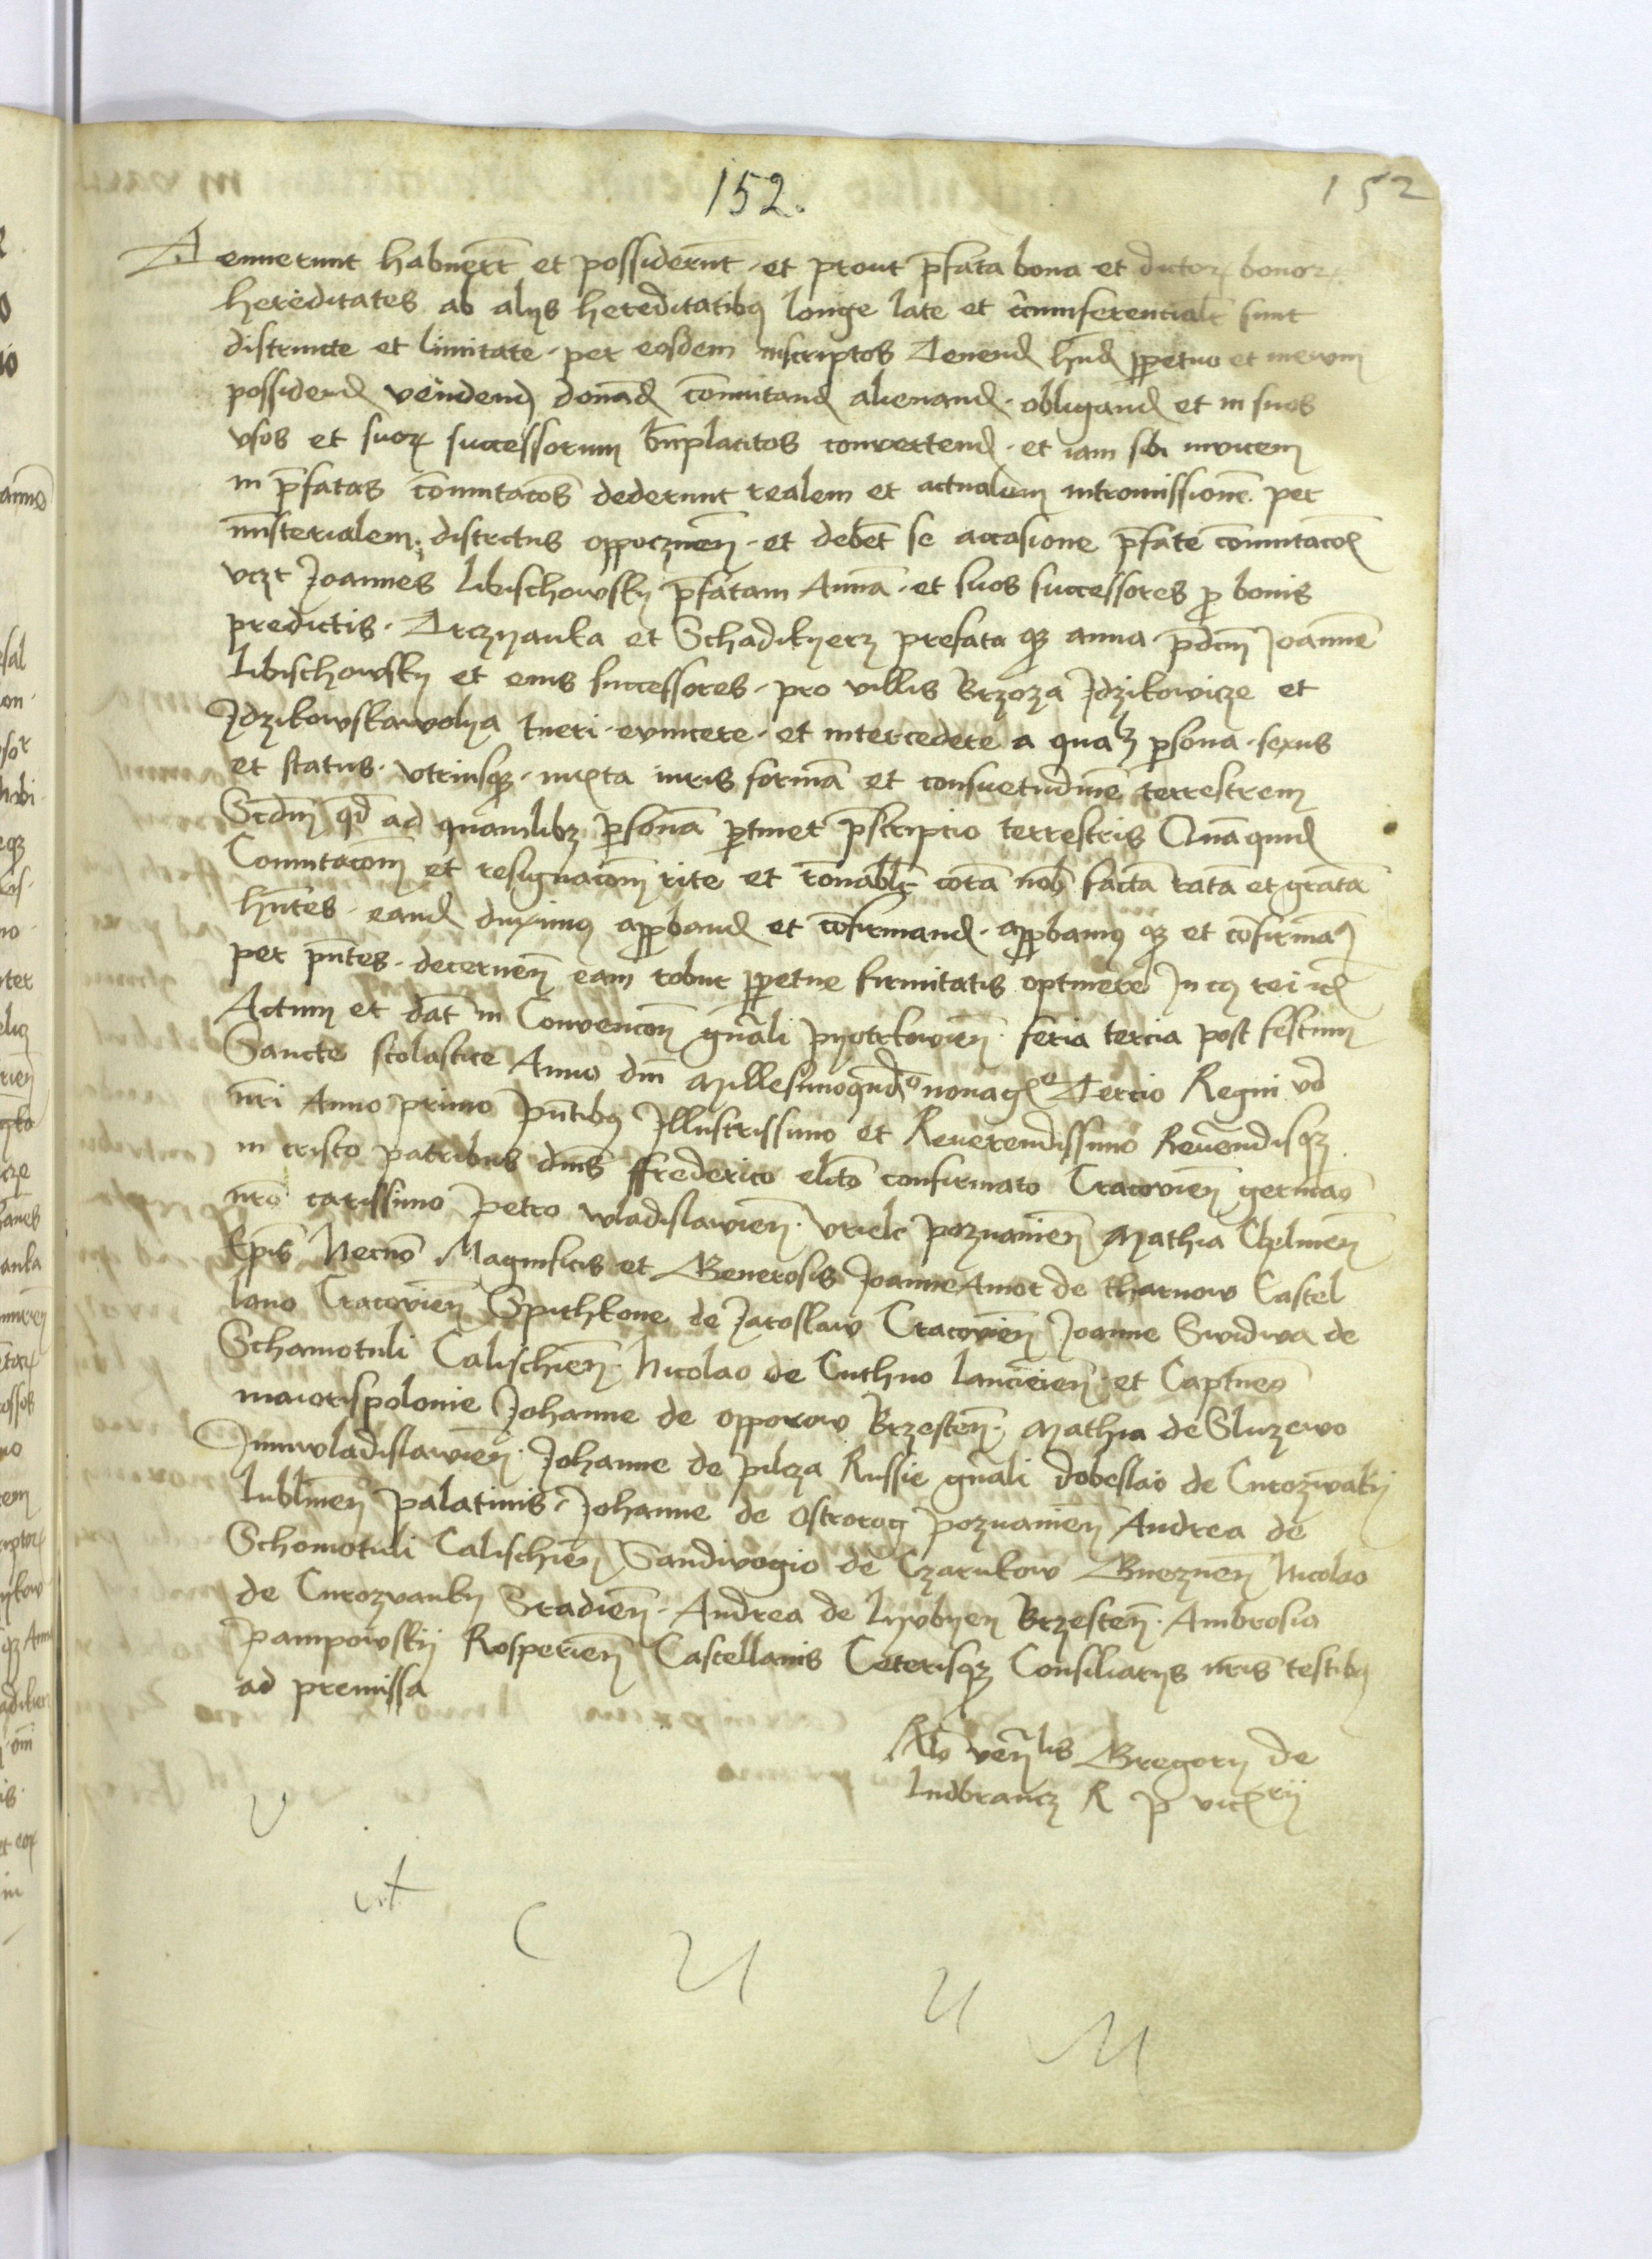 152.
152
Tenuerunt habuert et possiderunt et prout pfata bona et dictor bonor
hereditates ab alijs hereditatibus longe late et circumferentialr sunt
distincte et limitate per eosdem inscriptos Tenend hnd ppetuo et in evum
possidend vendend donad comutand alienand obligand et in suos
vsos et suor successorum bnplacitos convertend et iam sibi invicem
in pfatas comutacoes dederunt realem et actualem intromissione per
ministerialem districtus oppocznen et debet se occasione pfate comutacois
vczt Joannes Libischowsky pfatam Anna et suos successores p bonis
predictis Trczyanka et Schadikyerz prefata qz anna pdcm Joanne
Libischowsky et eius successores pro villis Brzoza Idzikowicze et
Idzikowskawolya tueri evincere et intercedere a qualz psona sexus
et status vtriusqz iuxta iuris forma et consuetudine terrestrem
Scdm qd ad quamlibz psona ptinet pscriptio terrestris Qua quid
Comutacom et resignacom rite et ronablr cora nob facta rata et grata
hntes eand duximus approband et cofirmand approbamus qz et cofirmam
per pntes decernen eam robur ppetue firmitatis optinere In cuius rei
Actum et dat in Convencoe gnali pyotrkovien feria tercia post festum
Sancte scolastice Anno dni Millesimoqudo nonago Tercio Regni vo
nri Anno primo pntibus Illustrissimo et Reuerendissimo Reuendisqz
in cristo patribus dnis ffrederico elcto confirmato Cracovien germao
nro carissimo petro wladislavien vriele poznanien Mathia Chelmen
Epis Necno Magnificis et Generosis Joanne Amor de tharnow Castel
lano Cracovien Spithkone de Jaroslaw Cracovien Joanne Swidwa de
Schamotuli Calischien Nicolao de Cuthno lancicien et Captneo
maiorispolonie Johanne de opporow Brzesten Mathia de Sluzewo
Juniwladislavien Johanne de pilcza Russie gnali dobeslao de Curozwaky
lublinen palatinis Johanne de ostrorog poznanien Andrea de
Schomotuli Calischien Sandivogio de Czarnkow Gneznen Nicolao
de Curozvanky Siradien Andrea de lyvbyen Brzesten Ambrosio
pampowskij Rosperien Castellanis Ceterisqz Consiliarijs nris testibus
ad premissa
Rlo venlis Gregorij de
ludbrancz R p vicrij
V
A
C
U
U
M